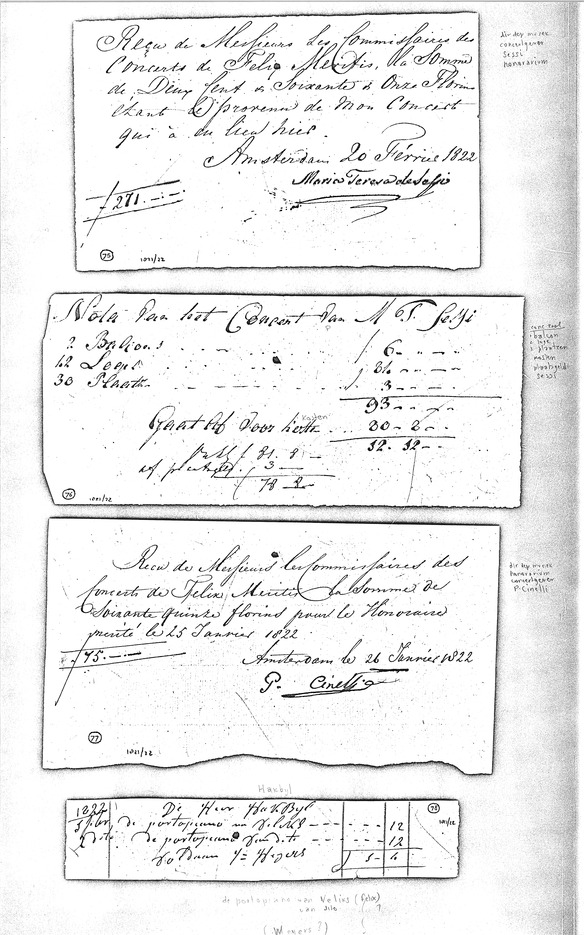 Reçu de Messieurs Les Commissaires des
Concerts de Felix Meritis, la Somme
de Deux Cent & Soixante & Onze Florins
étant le provenu de mon Concert
qui à eu lieu hier.
Amsterdam 20 Février 1822
Maria Teresa de Sessi
271.—.—
75
1021/22
dir dep muziek
concertgever
Sessi
honorarium
Nota van het Concert van M T. Sessi
Balcons 6 - - -
12 Loges
30 Plaats 3 - -
93 - -
Gaat af voor kosten 30 - 2 -
kasten
81. 8
af 3 —
78 8
76
1021/22
balcon
plaatsen
kosten
plaatsgeld
Sessi
Recu de Messieurs les Commissaires des
Concerts de Felix Meritis la Somme de
Soixante quinze florins pour le Honoraire
merité le 25 Janvier 1822
75.—.—
Amsterdam le 26 Janvier 1822
P. Cinelli
77
1021/22
dir dep muziek
honorarium
concertgever
P. Cinelli
Hakbyl
1822 De Heer Hakbyl
de portopiano - - - 12
dito de portopiano van dito - - - 12
Voldaan
78
1021/22
de portopiano van Velixs (Felix)
van dito ?
(Meners?)